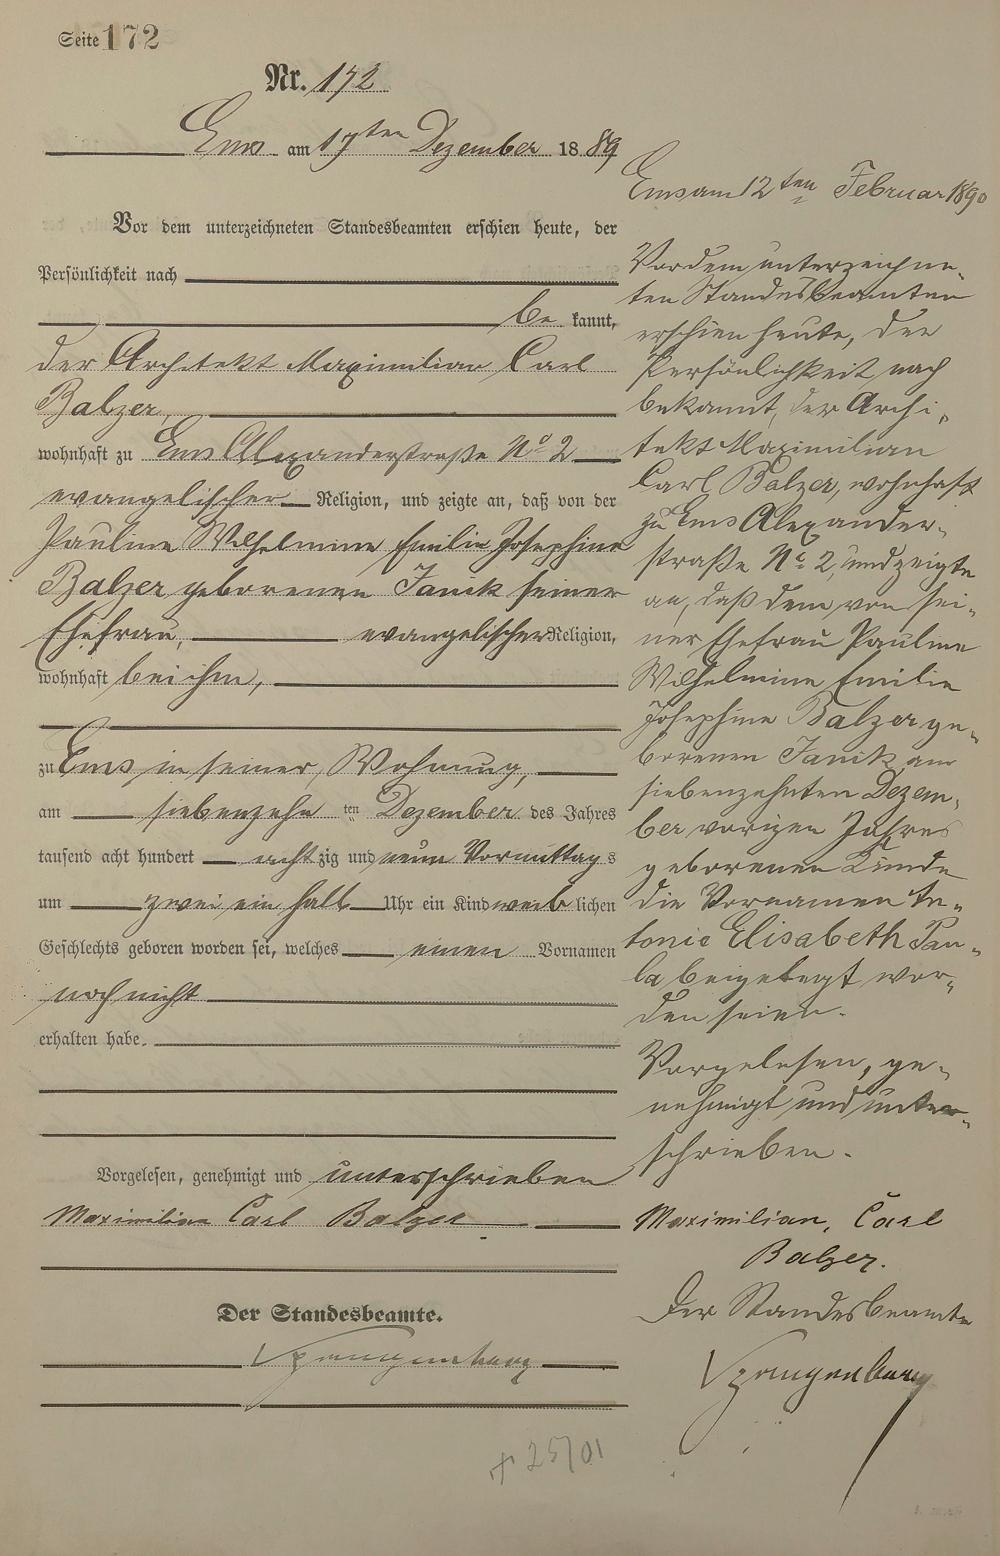 Seite 172
Nr. 172
Ems am 17ten Dezember 1889
Vor dem unterzeichneten Standesbeamten erschien heute, der
Persönlichkeit nach
be kannt,
der Architekt Maximilian Carl
Balzer,
wohnhaft zu Ems Alexanderstraße No 2
evangelischer Religion, und zeigte an, daß von der
Pauline Wilhelmine Emilie Josephine
Balzer geborenen Janik seiner
Ehefrau, evangelischer Religion,
wohnhaft bei ihm,
zu Ems in seiner Wohnung,
am siebenzehn ten Dezember des Jahres
tausend acht hundert acht zig und neun Vormittags
um zwei ein halb Uhr ein Kind weib lichen
Geschlechts geboren worden sei, welches einen Vornamen
noch nicht
erhalten habe.
Vorgelesen, genehmigt und unterschrieben
Maximilian Carl Balzer
Der Standesbeamte.
Spangenberg
Ems am 12ten Februar 1890
Vor dem unterzeichne-
ten Standesbeamten
erschien heute, der
Persönlichkeit nach
bekannt, der Archi-
tekt Maximilian
Carl Balzer, wohnhaft
zu Ems Alexander-
straße No 2, und zeigte
an, daß dem von sei-
ner Ehefrau Pauline
Wilhelmine Emilie
Josephine Balzer ge-
borenen Janik, am
siebenzehnten Dezem-
ber vorigen Jahres
geborenen Kinde
die Vornamen An-
tonie Elisabeth Pau-
la beigelegt wor-
den seien.
Vorgelesen, ge-
nehmigt und unter-
schrieben.
Maximilian, Carl
Balzer.
Der Standesbeamte
Spangenberg
+ 25/01